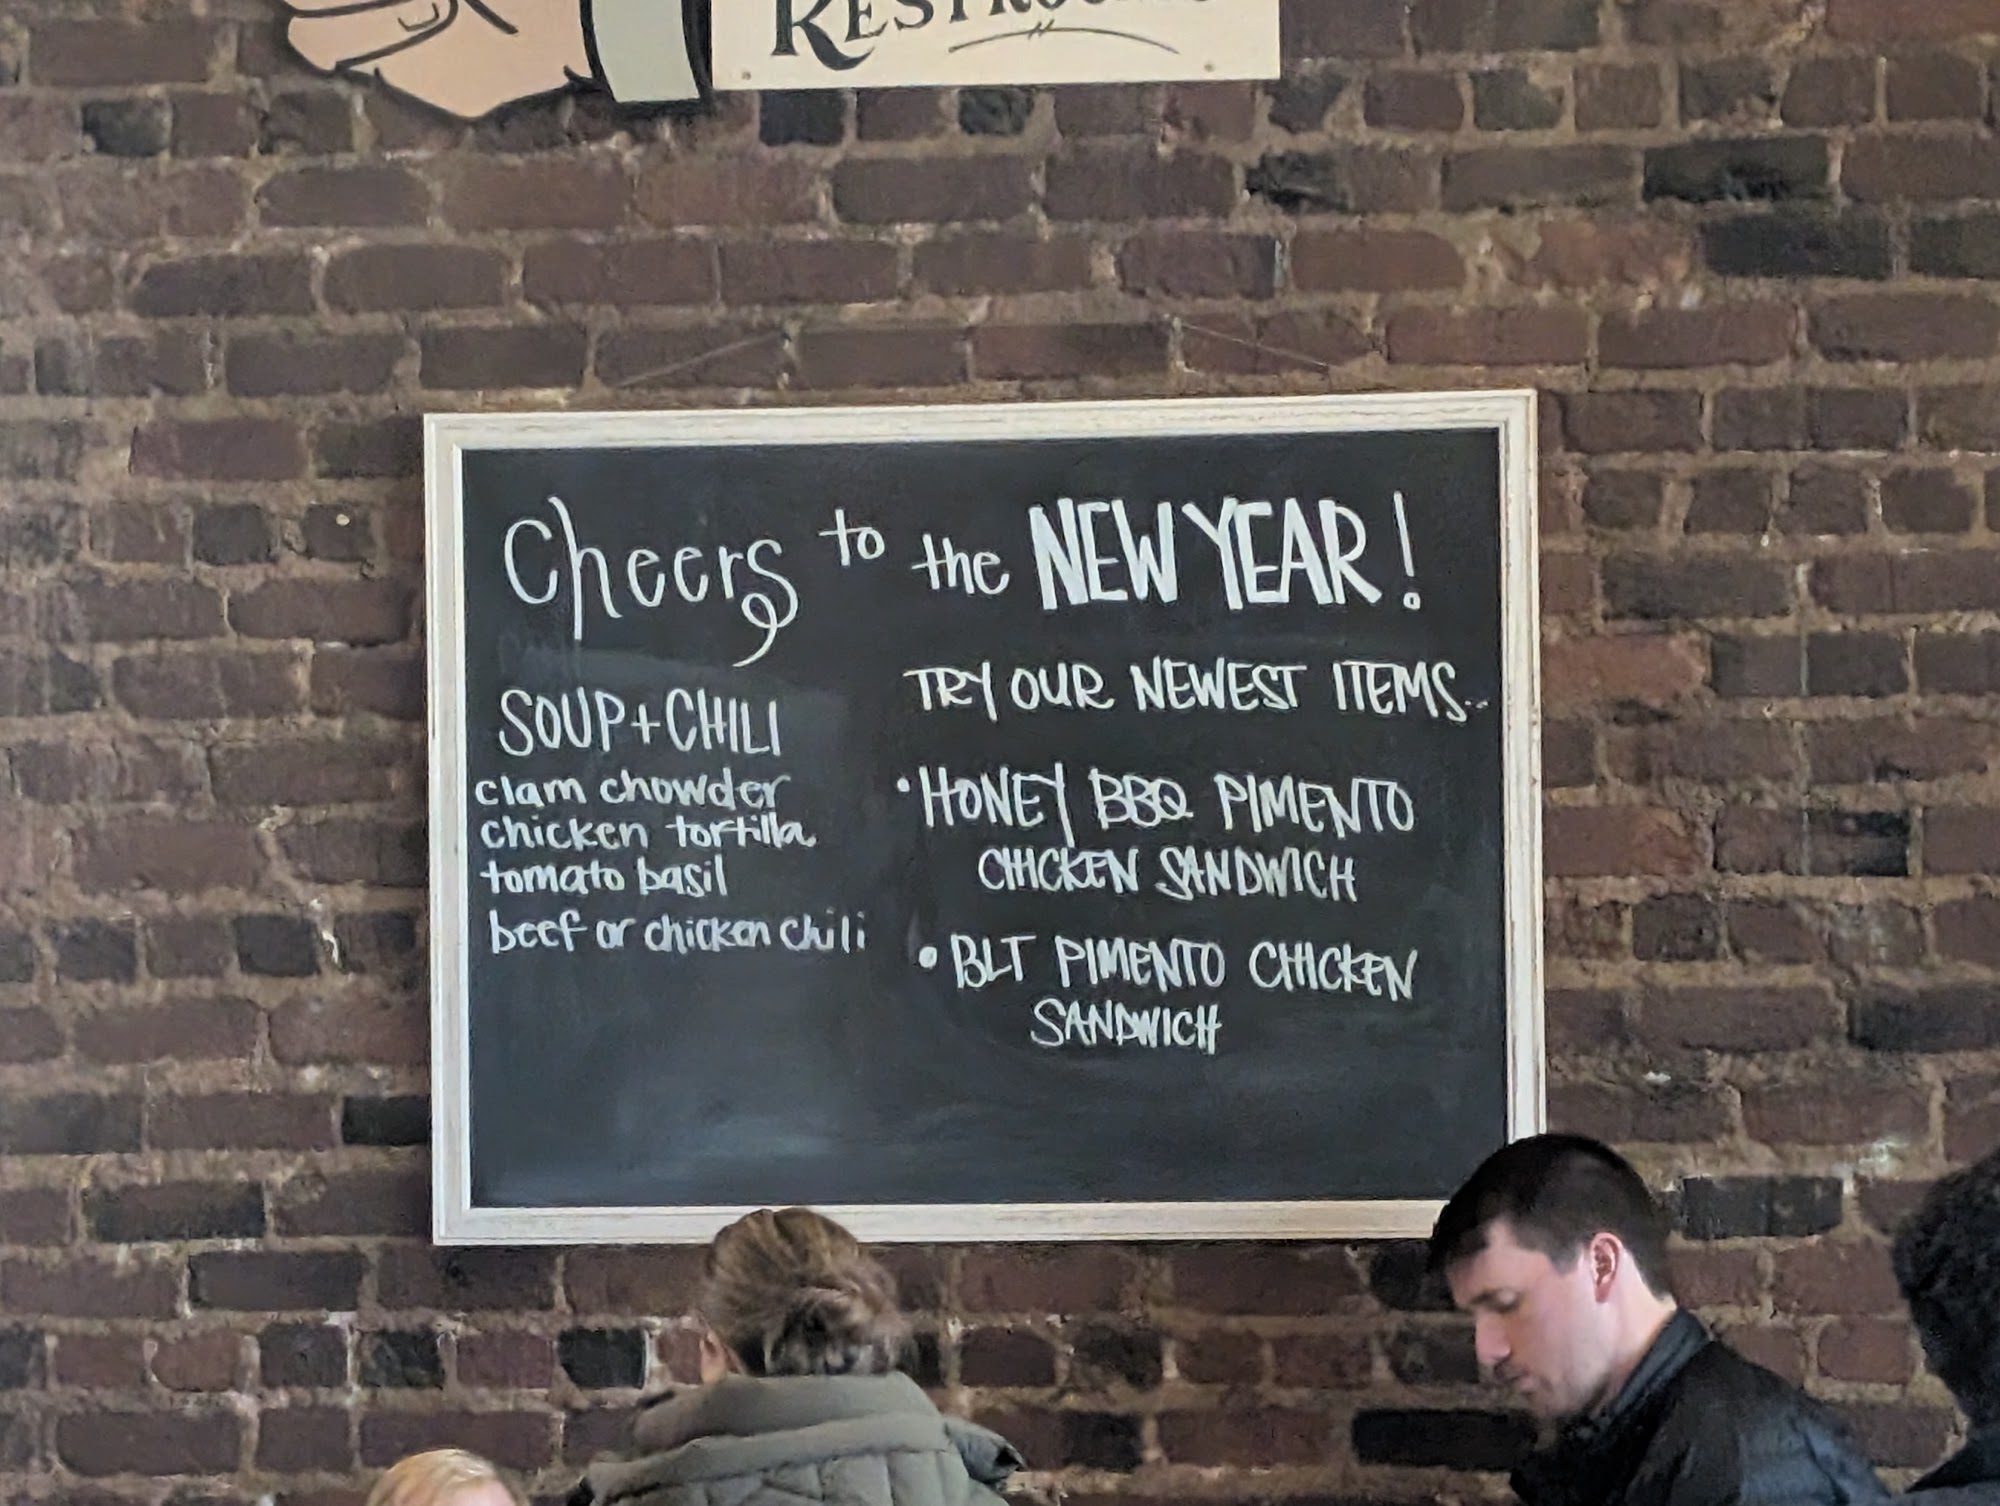 RESTROOMS
Cheers to the NEW YEAR!
SOUP+CHILI
clam chowder
chicken tortilla
tomato basil
beef or chicken chili
TRY OUR NEWEST ITEMS..
• HONEY BBQ PIMENTO
CHICKEN SANDWICH
• BLT PIMENTO CHICKEN
SANDWICH